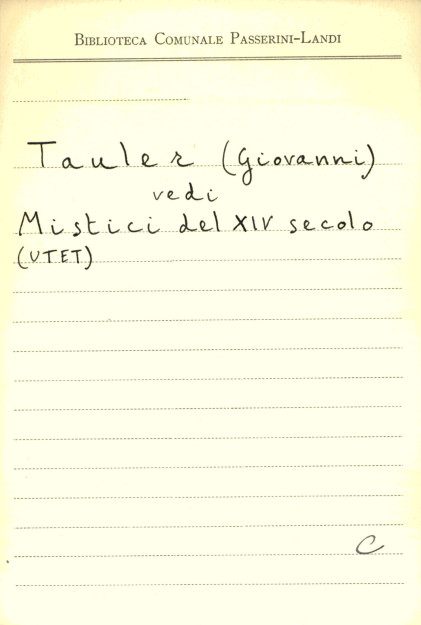 Biblioteca Comunale Passerini-Landi
Tauler (Giovanni)
vedi
Mistici del XIV secolo
(UTET)
C